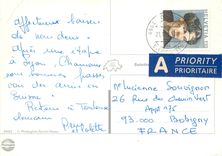 Affectueux baisers
de nous deux.
Après une étape
à Lyon, Chamonix
nous sommes passés
voir des amis en
Suisse
Retour à Toulouse
demain
Pierre
et Colette
HELVETIA
A PRIORITY
PRIORITAIRE
Mme Lucienne Souvignon
26 Rue du Chemin Vert
Appt 175
93.000 Bobigny
FRANCE